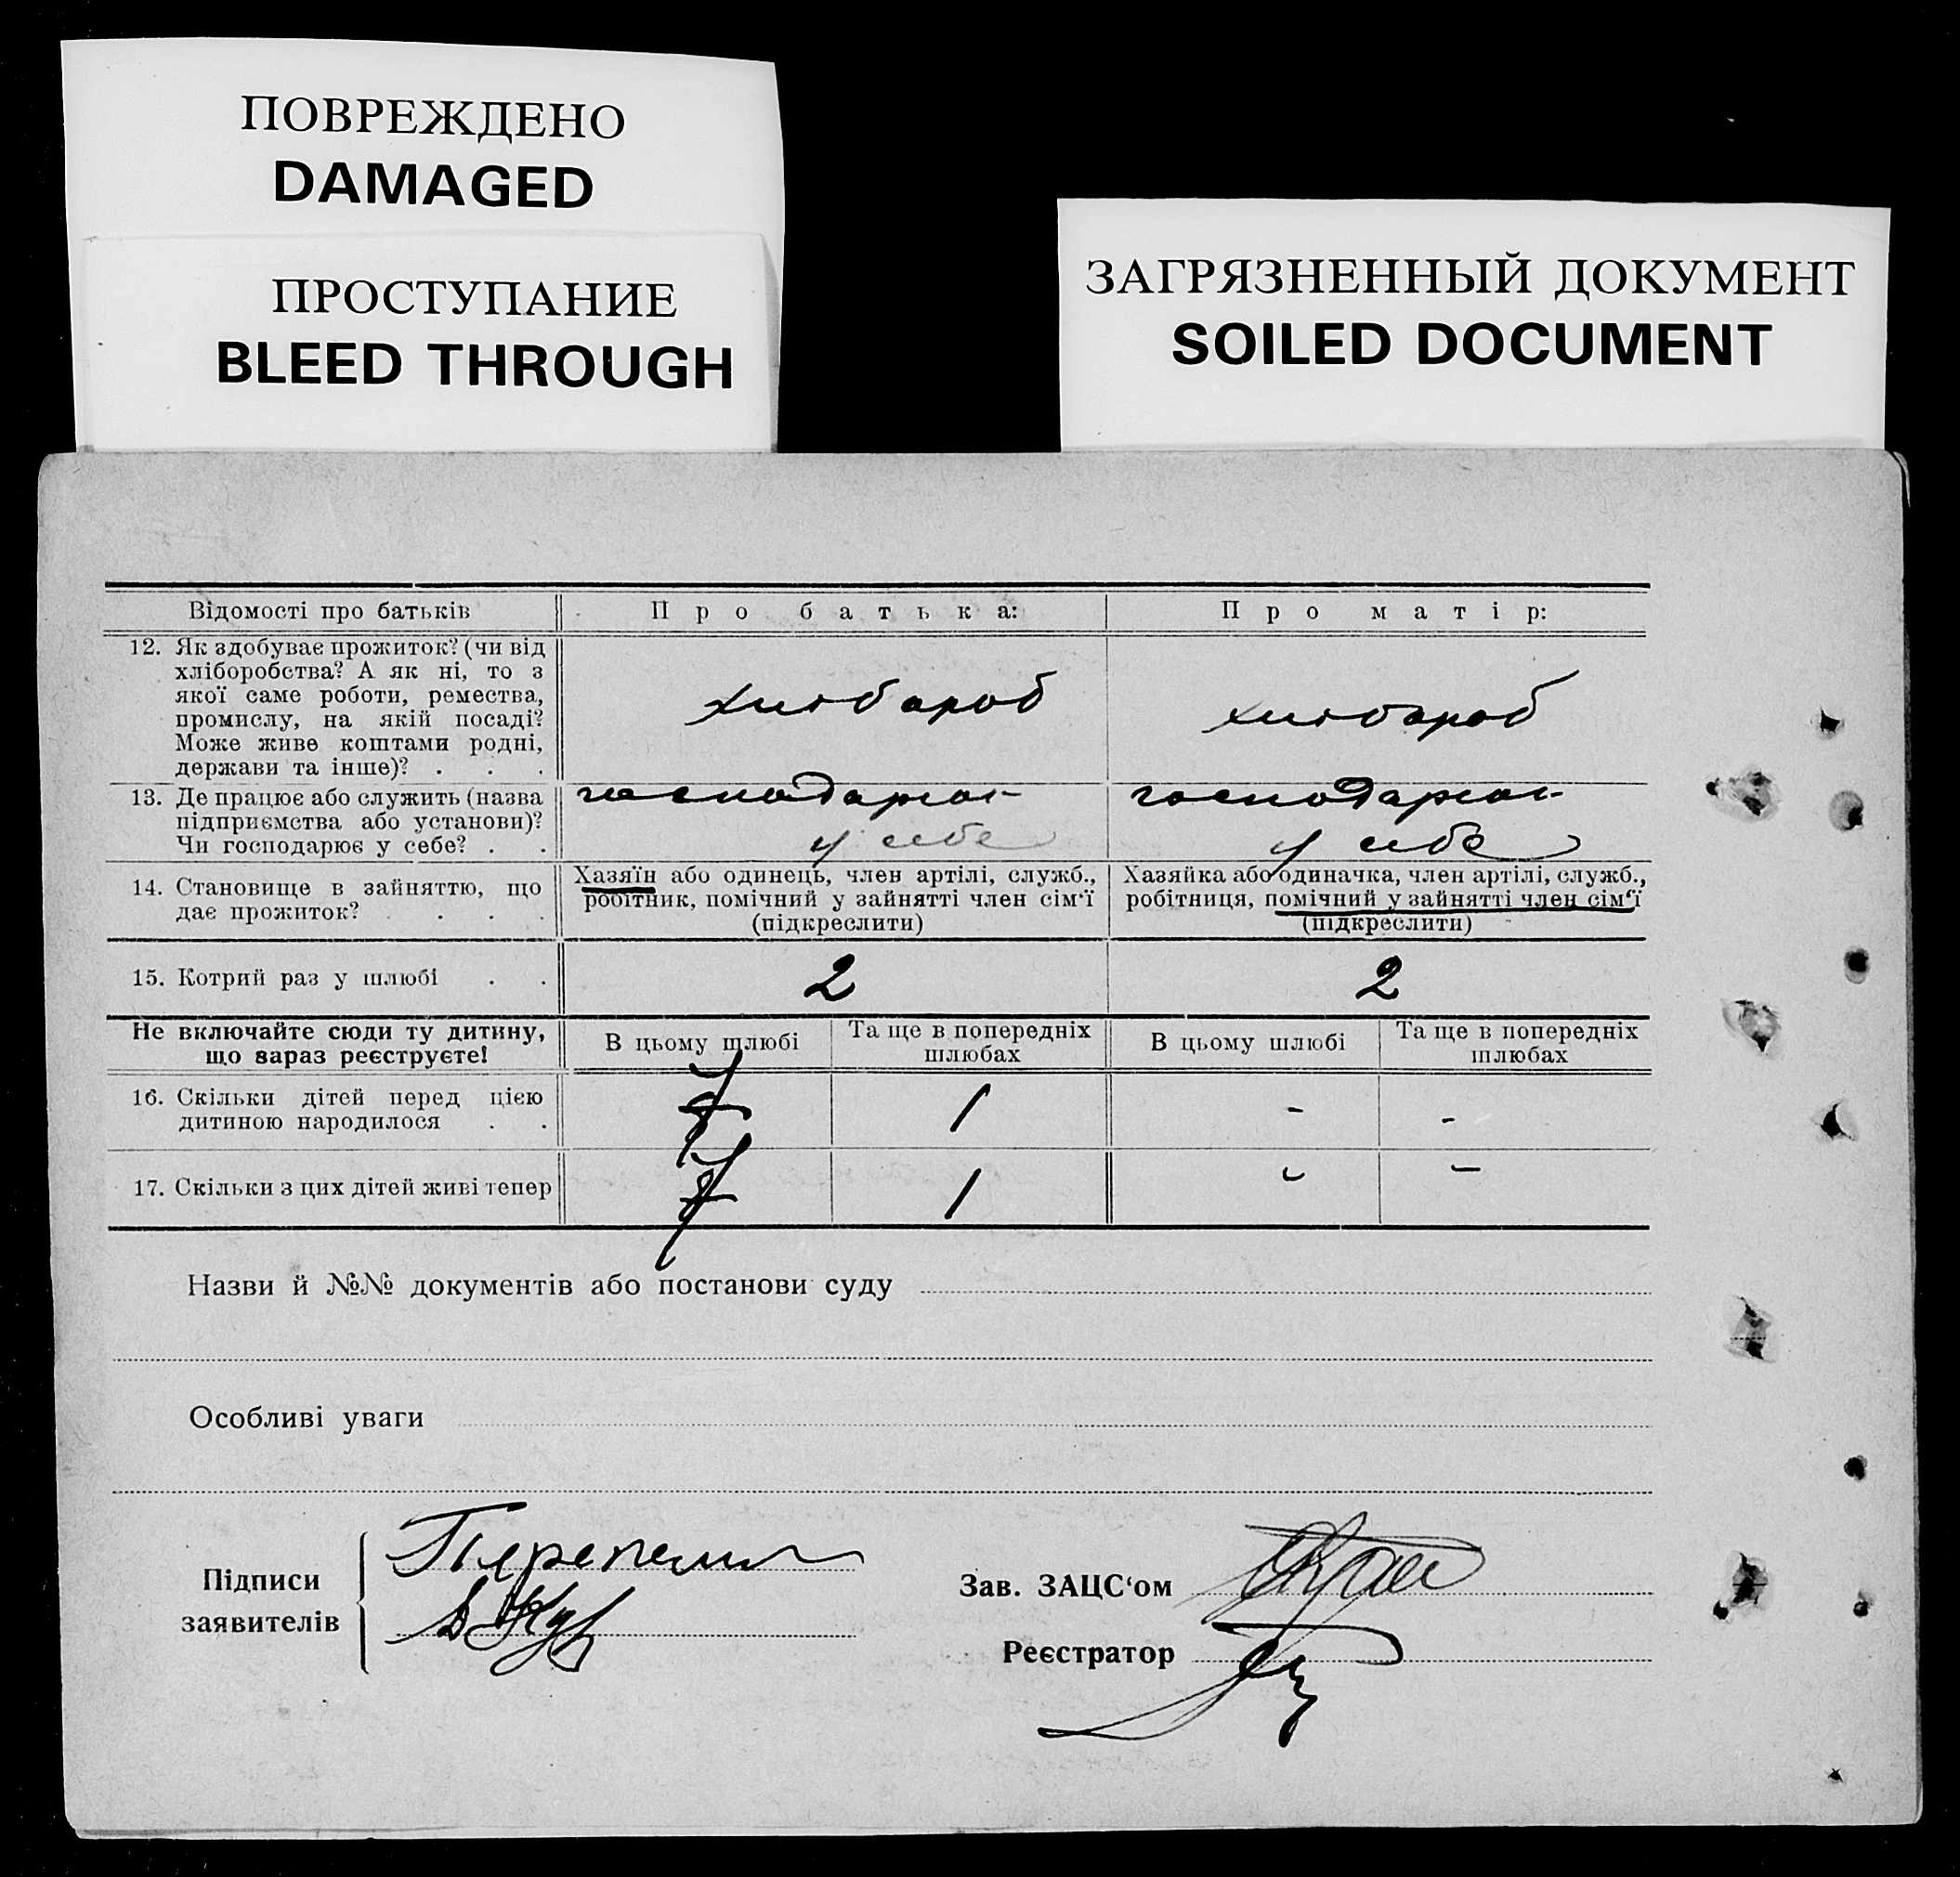 ПОВРЕЖДЕНО
DAMAGED
ПРОСТУПАНИЕ
BLEED THROUGH
ЗАГРЯЗНЕННЫЙ ДОКУМЕНТ
SOILED DOCUMENT
Відомості про батьків Про батька: Про матір:
12. Як здобуває прожиток? (чи від
хліборобства? А як ні, то з
якої саме роботи, ремества,
промислу, на якій посаді?
Може живе коштами родні,
держави та інше)? . . .
хлібороб хлібороб
13. Де працює або служить (назва
підприємства або установи)?
Чи господарює у себе? . .
господарює господарює
у себе у себе
14. Становище в зайняттю, що
дає прожиток? . . . .
Хазяїн або одинець, член артілі, служб.,
робітник, помічний у зайнятті член сім'ї
(підкреслити)
Хазяйка або одиначка, член артілі, служб.,
робітниця, помічний у зайнятті член сім'ї
(підкреслити)
15. Котрий раз у шлюбі . . 2 2
Не включайте сюди ту дитину,
що зараз реєструєте!
В цьому шлюбі
Та ще в попередніх
шлюбах
В цьому шлюбі
Та ще в попередніх
шлюбах
16. Скільки дітей перед цією
дитиною народилося . .
1 - -
17. Скільки з цих дітей живі тепер 1 - -
Назви й №№ документів або постанови суду
Особливі уваги
Підписи
заявителів
Зав. ЗАЦС'ом
Реєстратор